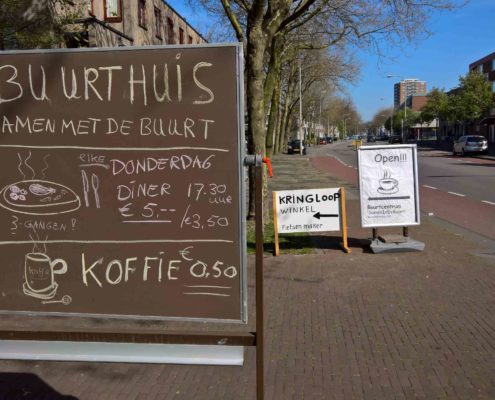 BUURTHUIS
SAMEN MET DE BUURT
PIKE DONDERDAG
DINER 17.30 uur
€ 5,-- / €3,50
3-GANGEN!
koffie
KOFFIE € 0,50
KRINGLOOP
WINKEL
Fietsen maker
Open!!!
Buurtcentrum